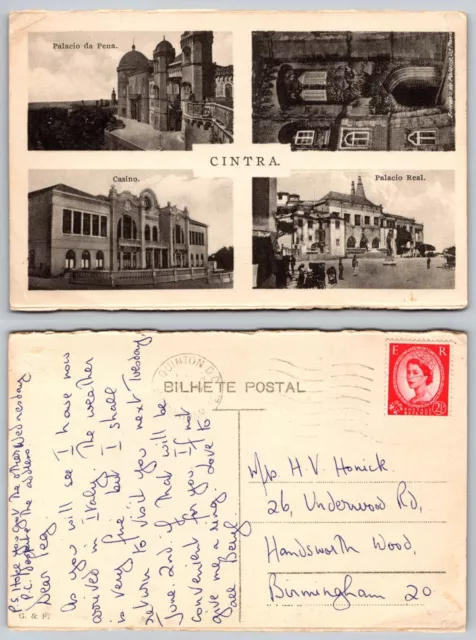 Palacio da Pena.
CINTRA.
Casino.
Palacio Real.
BILHETE POSTAL
QUINTON
E R
2½
Dear Peg
As you will see I have now
arrived in Italy. The weather
is very fine but I shall
return to visit you next Tuesday
June 2nd if that will be
convenient for you. If not
give me a ring. Love to
all Beryl
P.S. Hope you got the other Wednesday
P.C. despite the address.
M/s H. V. Honick.
26, Underwood Rd,
Handsworth Wood,
Birmingham 20
G. & F.